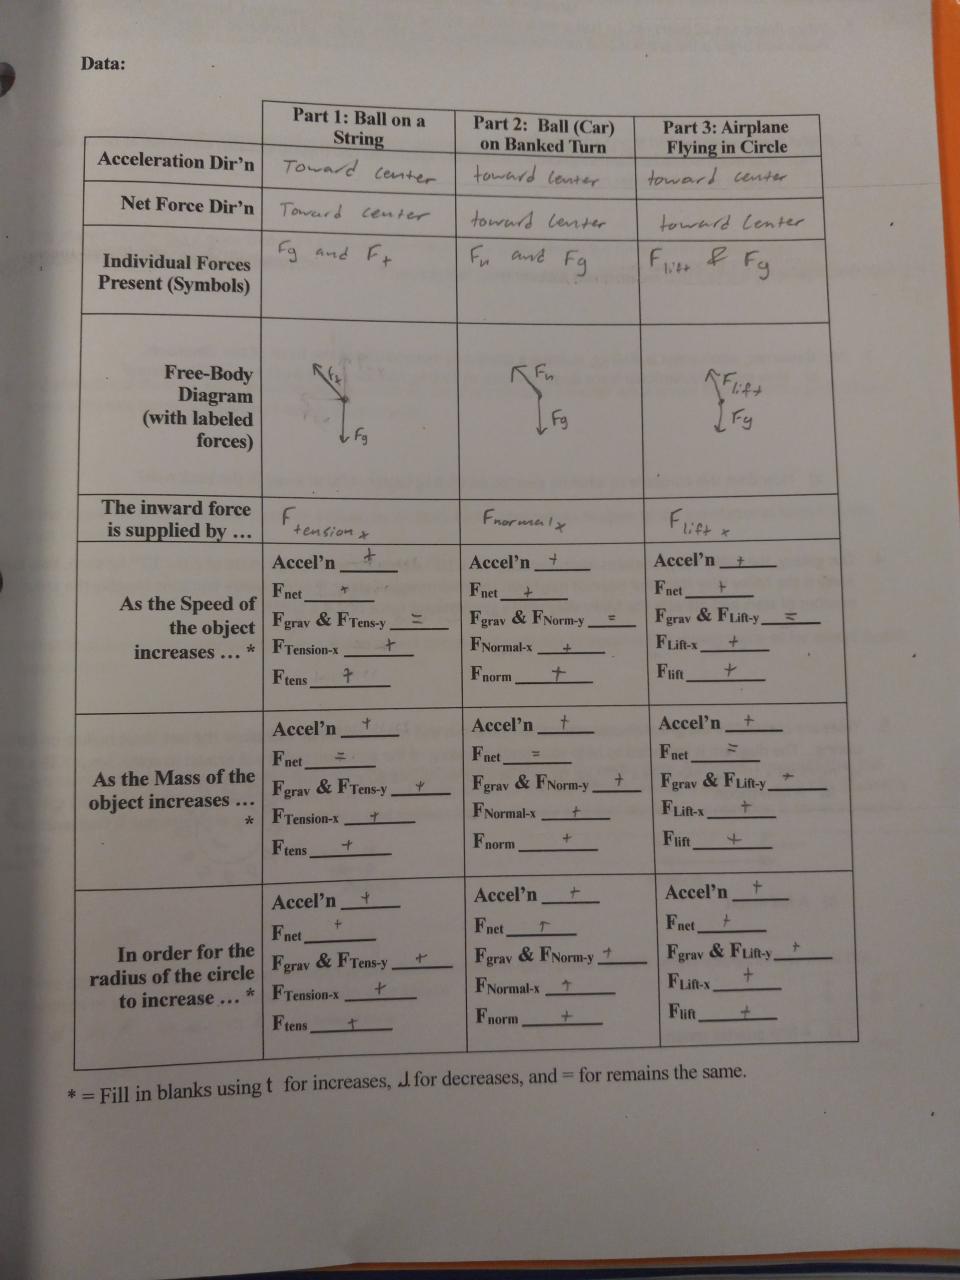 Data:
Part 1: Ball on a String
Part 2: Ball (Car) on Banked Turn
Part 3: Airplane Flying in Circle
Acceleration Dir'n
Toward center
toward center
toward center
Net Force Dir'n
Toward center
toward center
toward center
Individual Forces
Present (Symbols)
Fg and Ft
Fn and Fg
Flift & Fg
Free-Body
Diagram
(with labeled
forces)
Ft
Fg
Fn
Fg
Flift
Fg
The inward force
is supplied by ...
Ftension x
Fnormal x
Flift x
As the Speed of
the object
increases ... *
Accel'n +
Fnet +
Fgrav & FTens-y =
FTension-x +
Ftens +
Accel'n +
Fnet +
Fgrav & FNorm-y =
FNormal-x +
Fnorm +
Accel'n +
Fnet +
Fgrav & FLift-y =
FLift-x +
Flift +
As the Mass of the
object increases ...
*
Accel'n +
Fnet =
Fgrav & FTens-y +
FTension-x +
Ftens +
Accel'n +
Fnet =
Fgrav & FNorm-y +
FNormal-x +
Fnorm +
Accel'n +
Fnet =
Fgrav & FLift-y +
FLift-x +
Flift +
In order for the
radius of the circle
to increase ... *
Accel'n +
Fnet +
Fgrav & FTens-y +
FTension-x +
Ftens +
Accel'n +
Fnet +
Fgrav & FNorm-y +
FNormal-x +
Fnorm +
Accel'n +
Fnet +
Fgrav & FLift-y +
FLift-x +
Flift +
* = Fill in blanks using t for increases, ┘ for decreases, and = for remains the same.